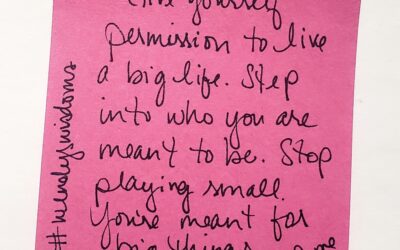 Give yourself
permission to live
a big life. Step
into who you are
meant to be. Stop
playing small.
You're meant for
big things.
#wendyswisdoms